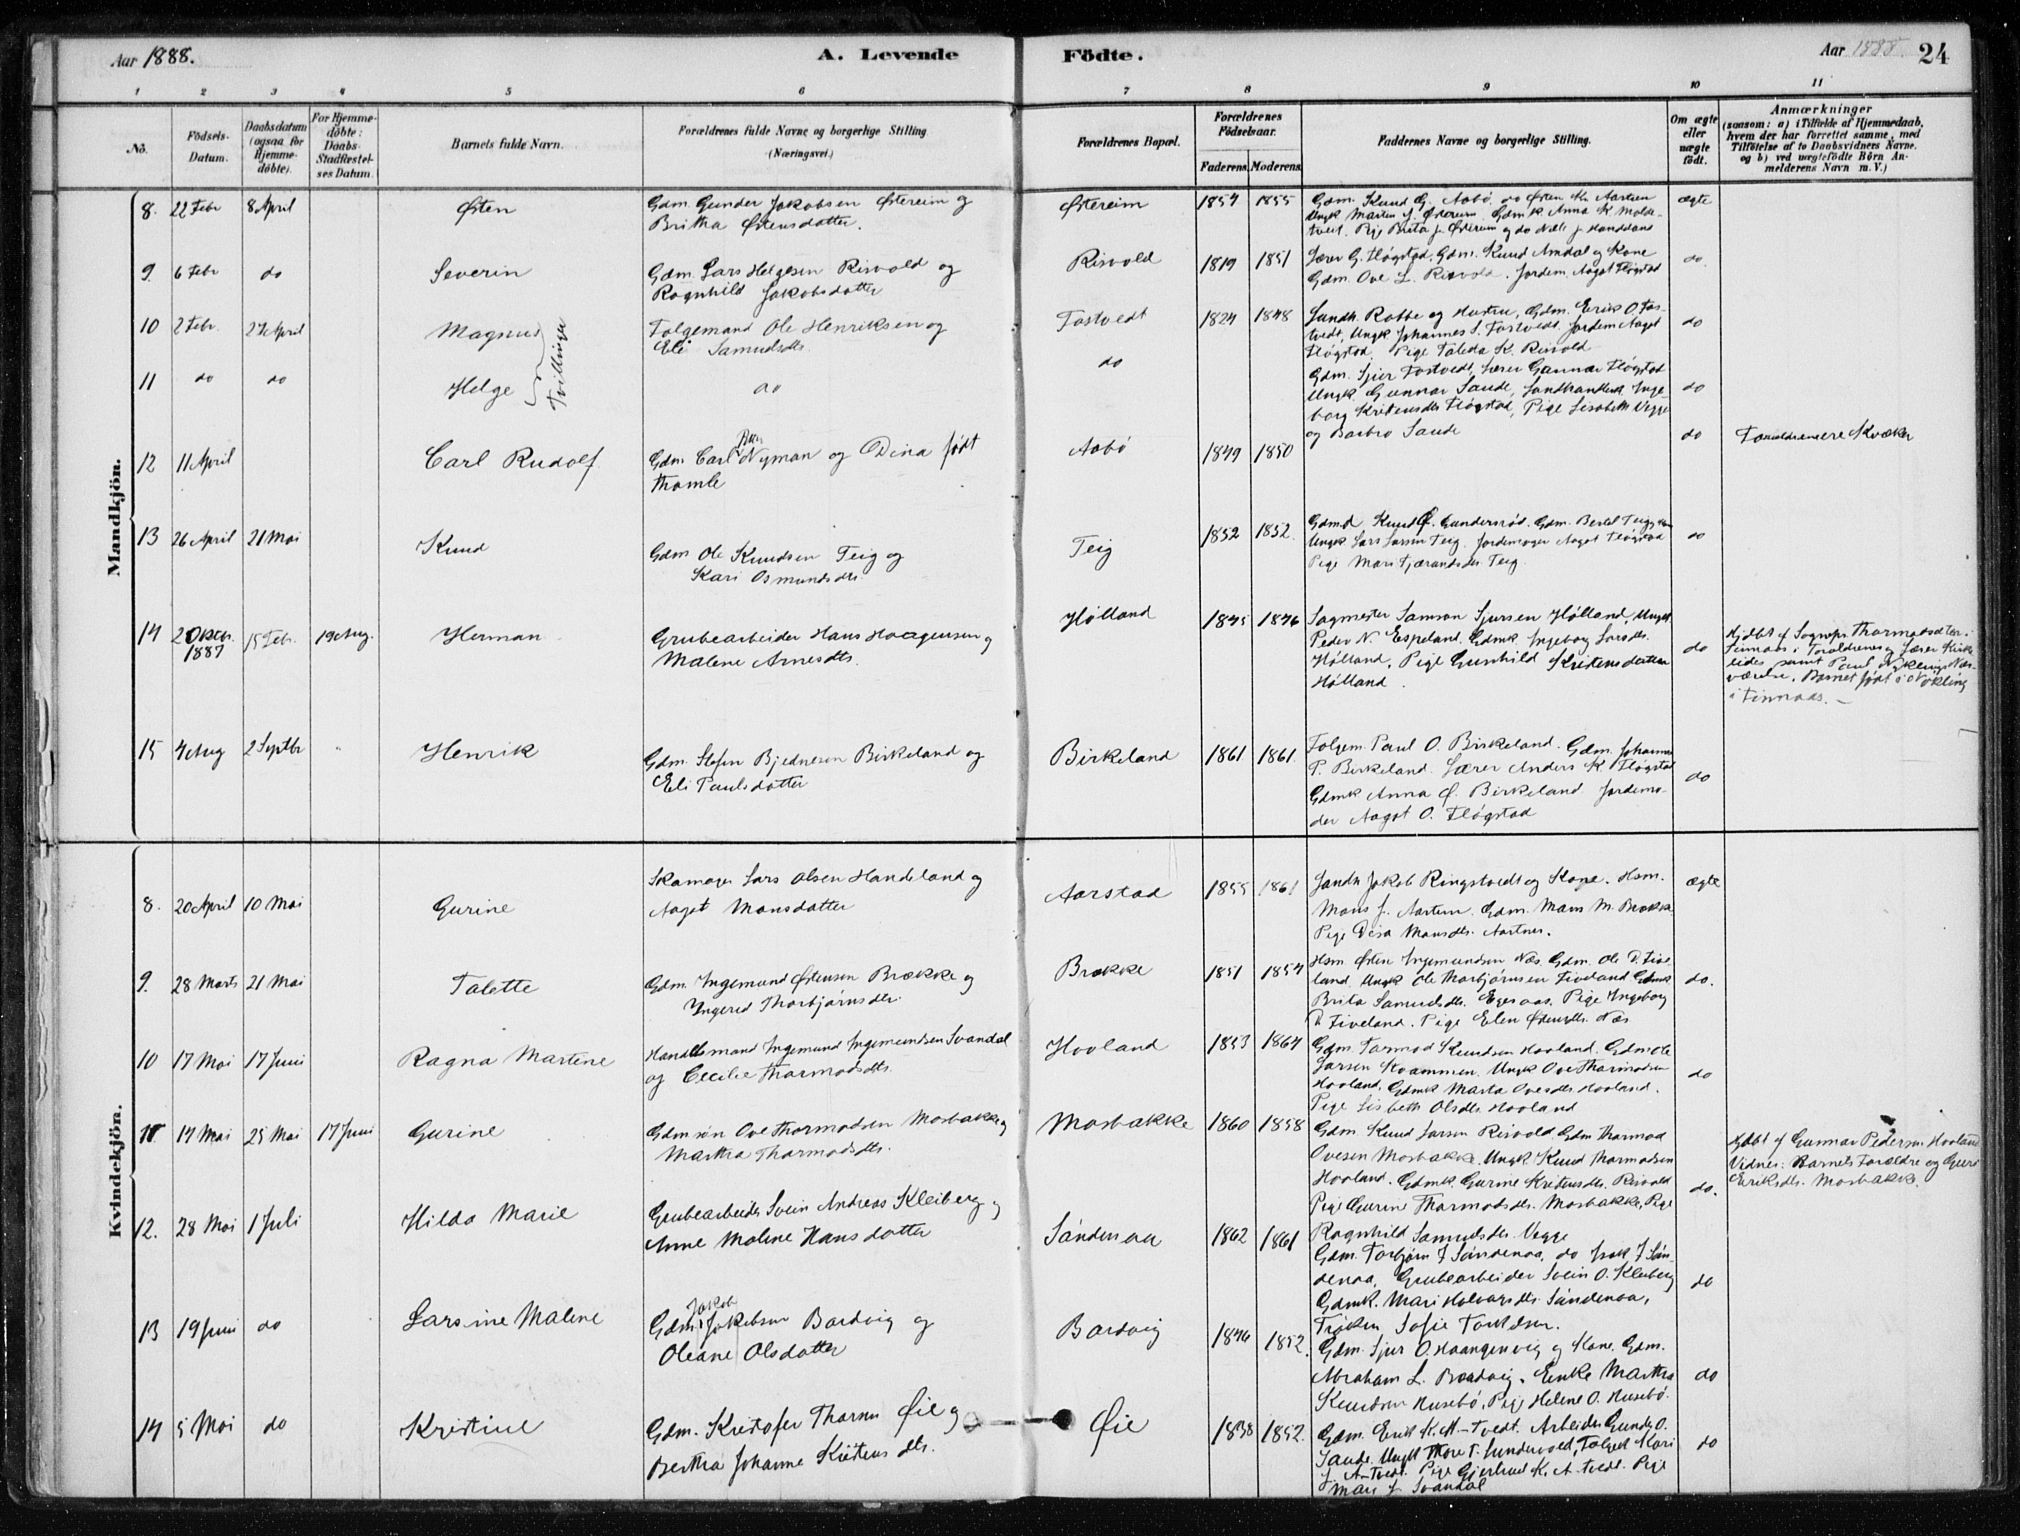 Aar 1888.
A. Levende
Födte.
Aar 1888
24
1 2 3 4 5 6 7 8 9 10 11
No.
Födsels-
Datum.
Daabsdatum
(ogsaa for
Hjemme-
döbte).
For Hjemme-
döbte:
Daabs-
Stadfæstel-
ses Datum.
Barnets fulde Navn.
Forældrenes fulde Navne og borgerlige Stilling
(Næringsvei.)
Forældrenes Bopæl.
Forældrenes
Födselsaar.
Faderens. Moderens.
Faddernes Navne og borgerlige Stilling.
Om ægte
eller
uægte
födt.
Anmærkninger
(saasom: a) i Tilfælde af Hjemmedaab,
hvem der har forrettet samme, med
Tilföielse af to Daabsvidners Navne,
og b) ved uægtefödte Börn An-
melderens Navn m. V.)
Mandkjön.
8. 22 Febr 8 April
Østen
Gdm. Gunder Jakobsen Østereim og
Britha Østensdatter.
Østereim
1854 1855
Gdm. Knud G. Aabö, do Østen
Ungk Martin J. Østereim. Gdmk Anna K. Molde-
tvedt. Pige Brita J. Østereim og do
ægte
9. 6 Febr do
Severin
Gdm. Lars Helgesen Risvold og
Ragnhild Jakobsdatter
Risvold
1819 1851
Lærer G. Fløgstad, Gdm. Knud Amdal og Kone
Gdm. Ove L. Risvold. Jordem. Aagot Fløgstad
do.
10 2 Febr. 27 April
Magnus
Tvillinger
Folgemand Ole Henriksen og
Eli Samuelsdtr.
Tostvedt
1824 1848
Landh. Robbe og Hustru, Gdm. Erik O. Tos-
tvedt, Ungk Johannes S. Tostvedt. Jordem Aagot
Fløgstad. Pige Taleta K. Risvold
do
11 do do
Helge
do
do
Gdm. Sjur Tostvedt, Lærer Gunnar Fløgstad
Ungk Gunnar Sande, Landhandlersk Inge-
borg Kristensdtr Fløgstad, Pige Lisabeth Vegge
og Barbro Sande
do
12 11 April
Carl Rudolf
Gdm. Carl Nyman og Dina født
Thamle
Aabö
1849 1850
do
Forældrene ere Kvæker
13 26 April 21 Mai
Knud
Gdm Ole Knudsen Teig og
Kari Osmundsdtr.
Teig
1852 1852.
Gdmd Knud Ø. Gundersrød. Gdm. Bertel Teig,
Ungk Lars Larsen Teig. Jordemoder Aagot Fløgstad
Pige Mari Tjærandsdtr. Teig.
do
14 2 Oktbr. 1887 15 Febr. 19 Aug.
Herman
Grubearbeider Hans Haagensen og
Malene Arnesdtr.
Hølland
1845 1846
Sagmester Samson Sjursen Hølland, Ungk
Peder N. Espeland. Gdmk Ingeborg Larsdtr.
Hølland, Pige Gunhild Kristensdatter
Hølland.
do
Hjdbt af Sognepr. Thormodsæter i
Finnaas i Forældrenes og Lærer Kirke-
eides samt Paul Nøklings Nær-
værelse. Barnet født i Nøkling
i Finnaas. –
15 4 Aug 2 Septbr "
Henrik
Gdm. Stefen Bjednesen Birkeland og
Eli Paulsdatter
Birkeland
1861 1861.
Folgem. Paul O. Birkeland. Gdm. Johannes
P. Birkeland. Lærer Anders K. Fløgstad
Gdmk Anna Ø. Birkeland Jordemo-
der Aagot O. Fløgstad
do
Kvindekjön.
8. 20 April 10 Mai
Gurine
Skomager Lars Olsen Handeland og
Aagot Monsdatter
Aarstad
1855 1861
Landh Jakob Ringstvedt og Kone. Hsm.
Mons J. Aartun. Gdm. Mons M. Brekke
Pige Disa Monsdtr. Aartnes.
ægte
9. 28 Marts 21 Mai
Talette
Gdm Ingemund Østensen Brække og
Ingerid Thorbjørnsdtr.
Brekke
1851 1854
Hsm. Østen Ingemundsen Næs. Gdm. Ole D. Five-
land. Ungk Ole Thorbjørnsen Fiveland Gdmk
Brita Samuelsdtr. Egesaas. Pige Ingeborg
D. Fiveland. Pige Elen Østensdtr. Næs
do.
10 17 Mai 17 Juni
Ragna Martine
Handelsmand Ingemund Ingemundsen Svandal
og Cecilie Thormodsdtr.
Hovland
1853 1864
Gdm. Tormod Knudsen Hovland. Gdm Ole
Larsen Kvammen. Ungk Ove Thormodsen
Hovland. Gdmk Marta Ovesdtr Hovland.
Pige Lisbeth Olsdtr. Hovland
do
11 14 Mai 25 Mai 17 Juni
Gurine
Gdmsøn Ove Thormodsen Mosbakke og
Martha Thormodsdtr.
Mosbakke
1860 1858
Gdm Knud Larsen Risvold. Gdm Thormod
Ovesen Mosbakke. Ungk Knud Thormodsen
Hovland. Gdmk. Gurine Kristensdtr. Risvold
Pige Gurine Thormodsdtr. Mosbakke, Pige
Ragnhild Samuelsdtr. Vegge
do.
Hjdbt af Gunnar Pedersen Hovland
Vidner: Barnets Forældre og Guro
Eriksdtr. Mosbakke.
12. 28 Mai 1 Juli
Hilda Marie
Grubearbeider Svein Andreas Kleiberg og
Anne Malene Hansdatter
Söndenaa
1862 1861
Gdm. Torbjørn J Söndenaa, do Isak J Sön-
denaa, Grubearbeider Svein O. Kleiberg
Gdmk. Mari Halvorsdtr. Söndenaa,
Frøken Sofie Torkelsen.
do
13 19 Juni do
Larsine Malene
Jakob
Gdm. Jakobsen Bardvig og
Oleane Olsdatter
Bardvig
1846 1852.
Gdm. Sjur O. Haangenvig og Kone, Gdm.
Abraham L. Bardvig. Enke Martha
Knudsen Husebö. Pige Helene O. Husebö.
do
14 5 Mai do
Kristine
Gdm. Kristofer Thoresen Øie og
Bertha Johanne Kristensdtr.
Øie
1838 1852.
Gdm. Erik K. A–tvedt. Arbeider Gunder O.
Sande. Ungk Thore T. Sundevold, Folgek Kari
J. A–tvedt. Pige Gjertrud K. A–tvedt. Pige
Mari J. Svandal
do